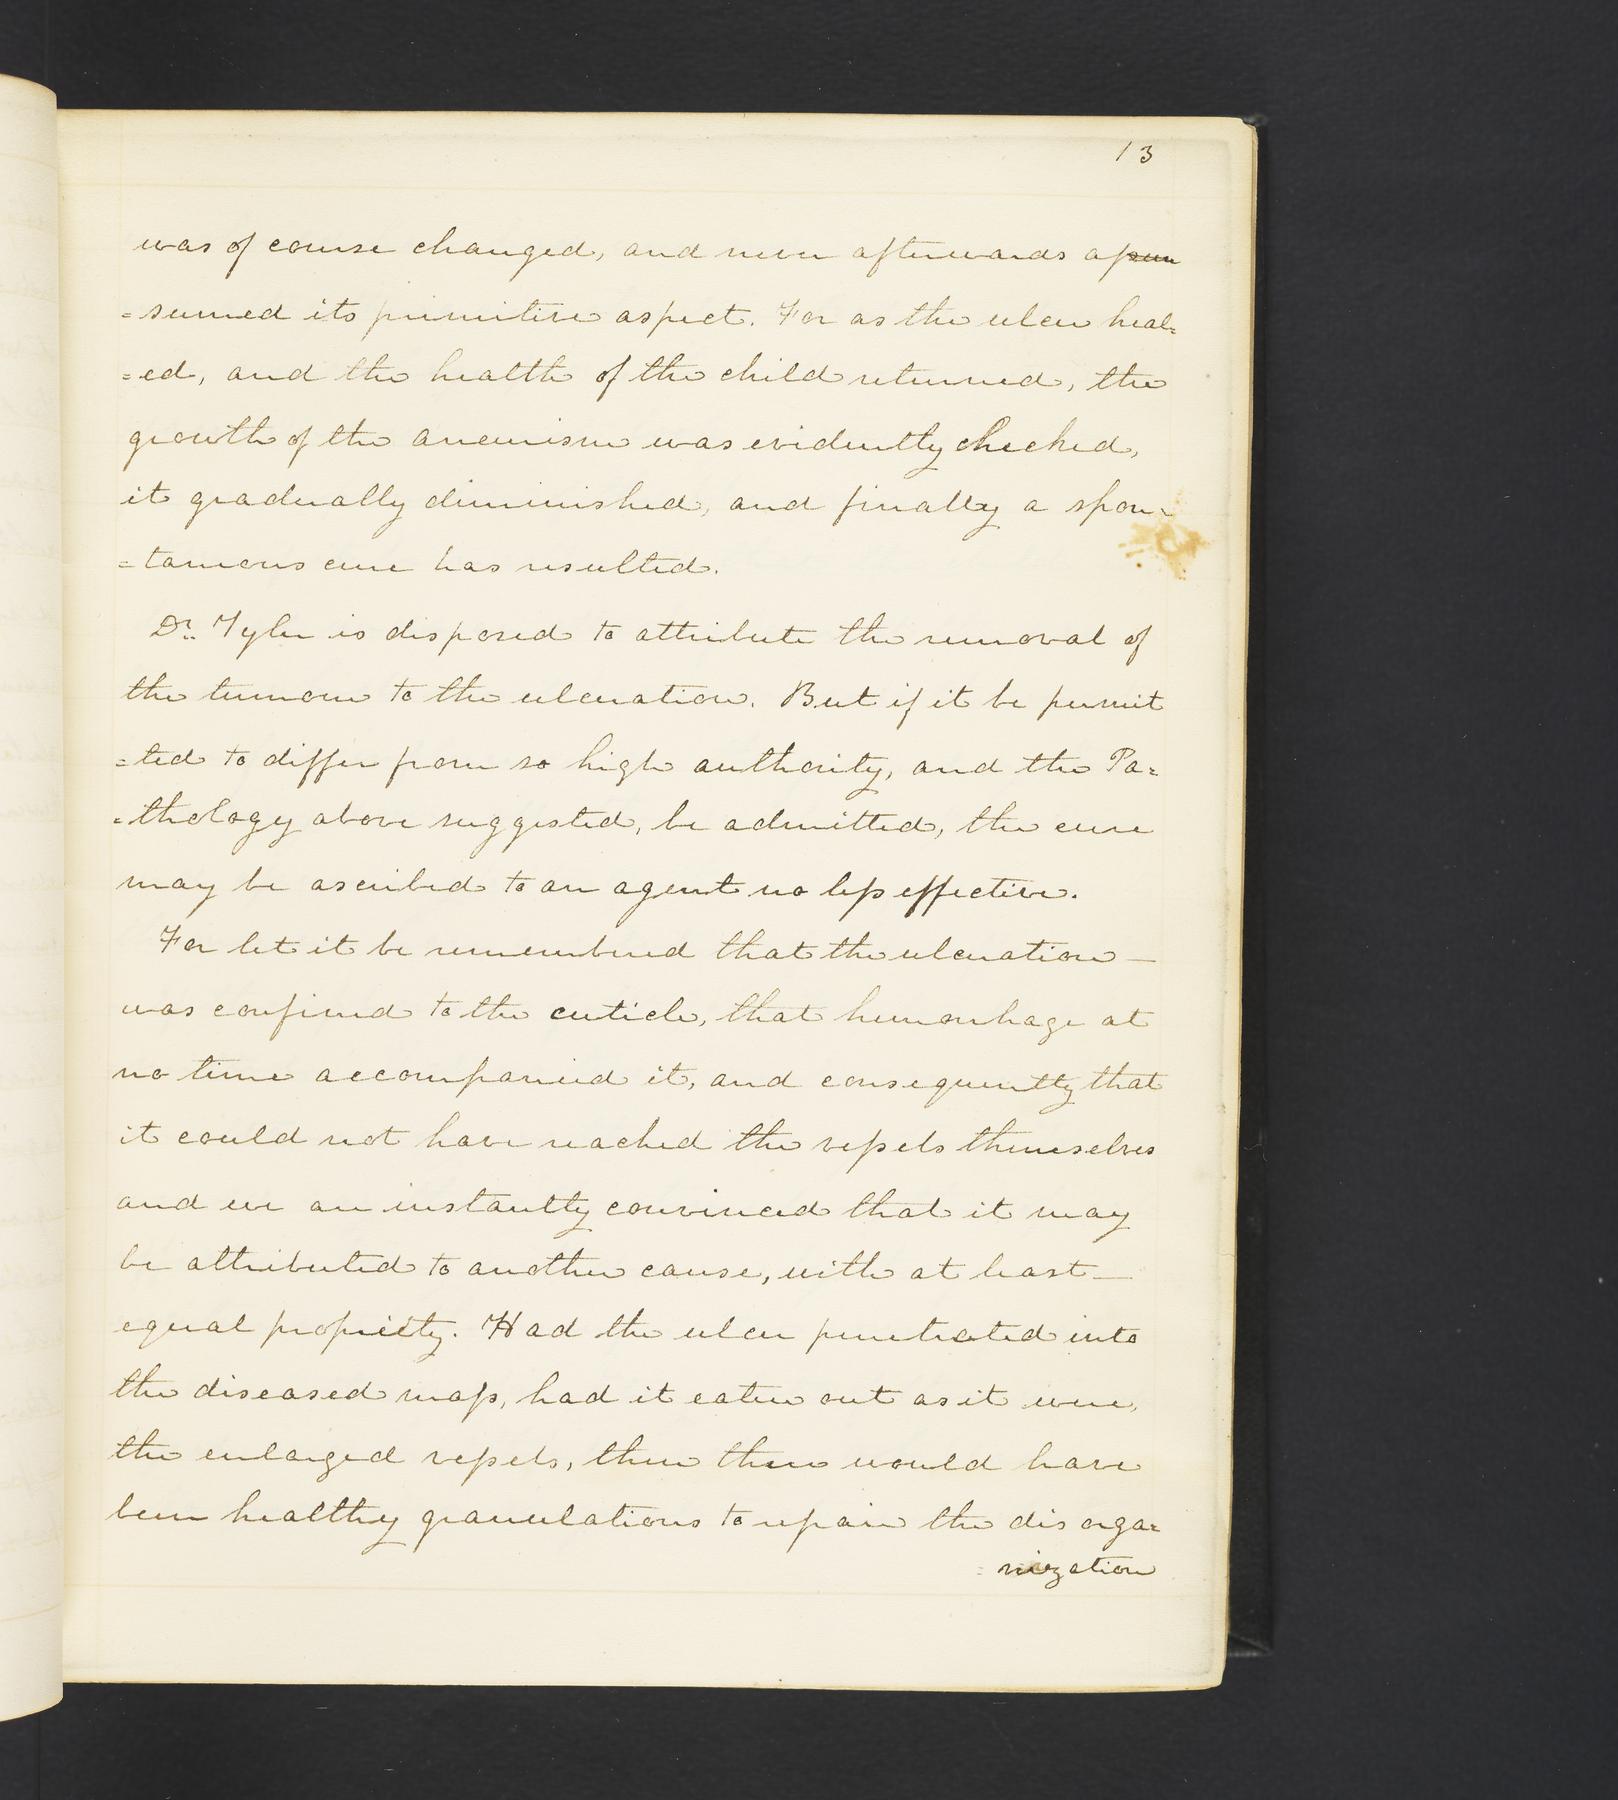 13
was of course changed, and never afterwards as
=sumed its primitive aspect. For as the ulcer heal=
=ed, and the health of the child returned, the
growth of the aneurism was evidently checked,
it gradually diminished, and finally a spon=
=taneous cure has resulted.
Dr. Tyler is disposed to attribute the removal of
the tumour to the ulceration. But if it be permit
=ted to differ from so high authority, and the Pa=
=thology above suggested, be admitted, the cure
may be ascribed to an agent no less effective.
For let it be remembered that the ulceration —
was confined to the cuticle, that hemorrhage at
no time accompanied it, and consequently that
it could not have reached the vessels themselves
and we are instantly convinced that it may
be attributed to another cause, with at least —
equal propriety. Had the ulcer penetrated into
the diseased mass, had it eaten out as it were,
the enlarged vessels, then there would have
been healthy granulations to repair the disorga=
=nization